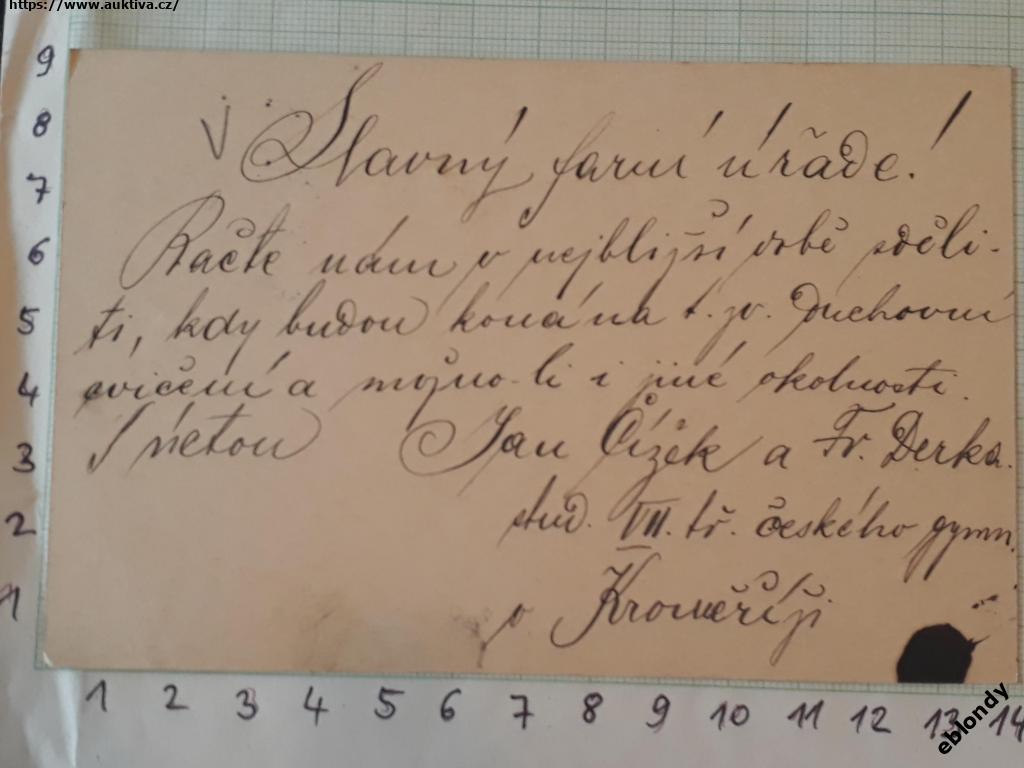 https://www.auktiva.cz/
Slavný farní úřade!
Račte nám v nejbližší době sděli-
ti, kdy budou konána t. zv. Duchovní
cvičení a možno-li i jiné okolnosti.
S úctou Jan Čížek a Fr. Derka.
stud. VII. tř. českého gymn.
v Kroměříži
9
8
7
6
5
4
3
2
1
1 2 3 4 5 6 7 8 9 10 11 12 13 14
eblondy